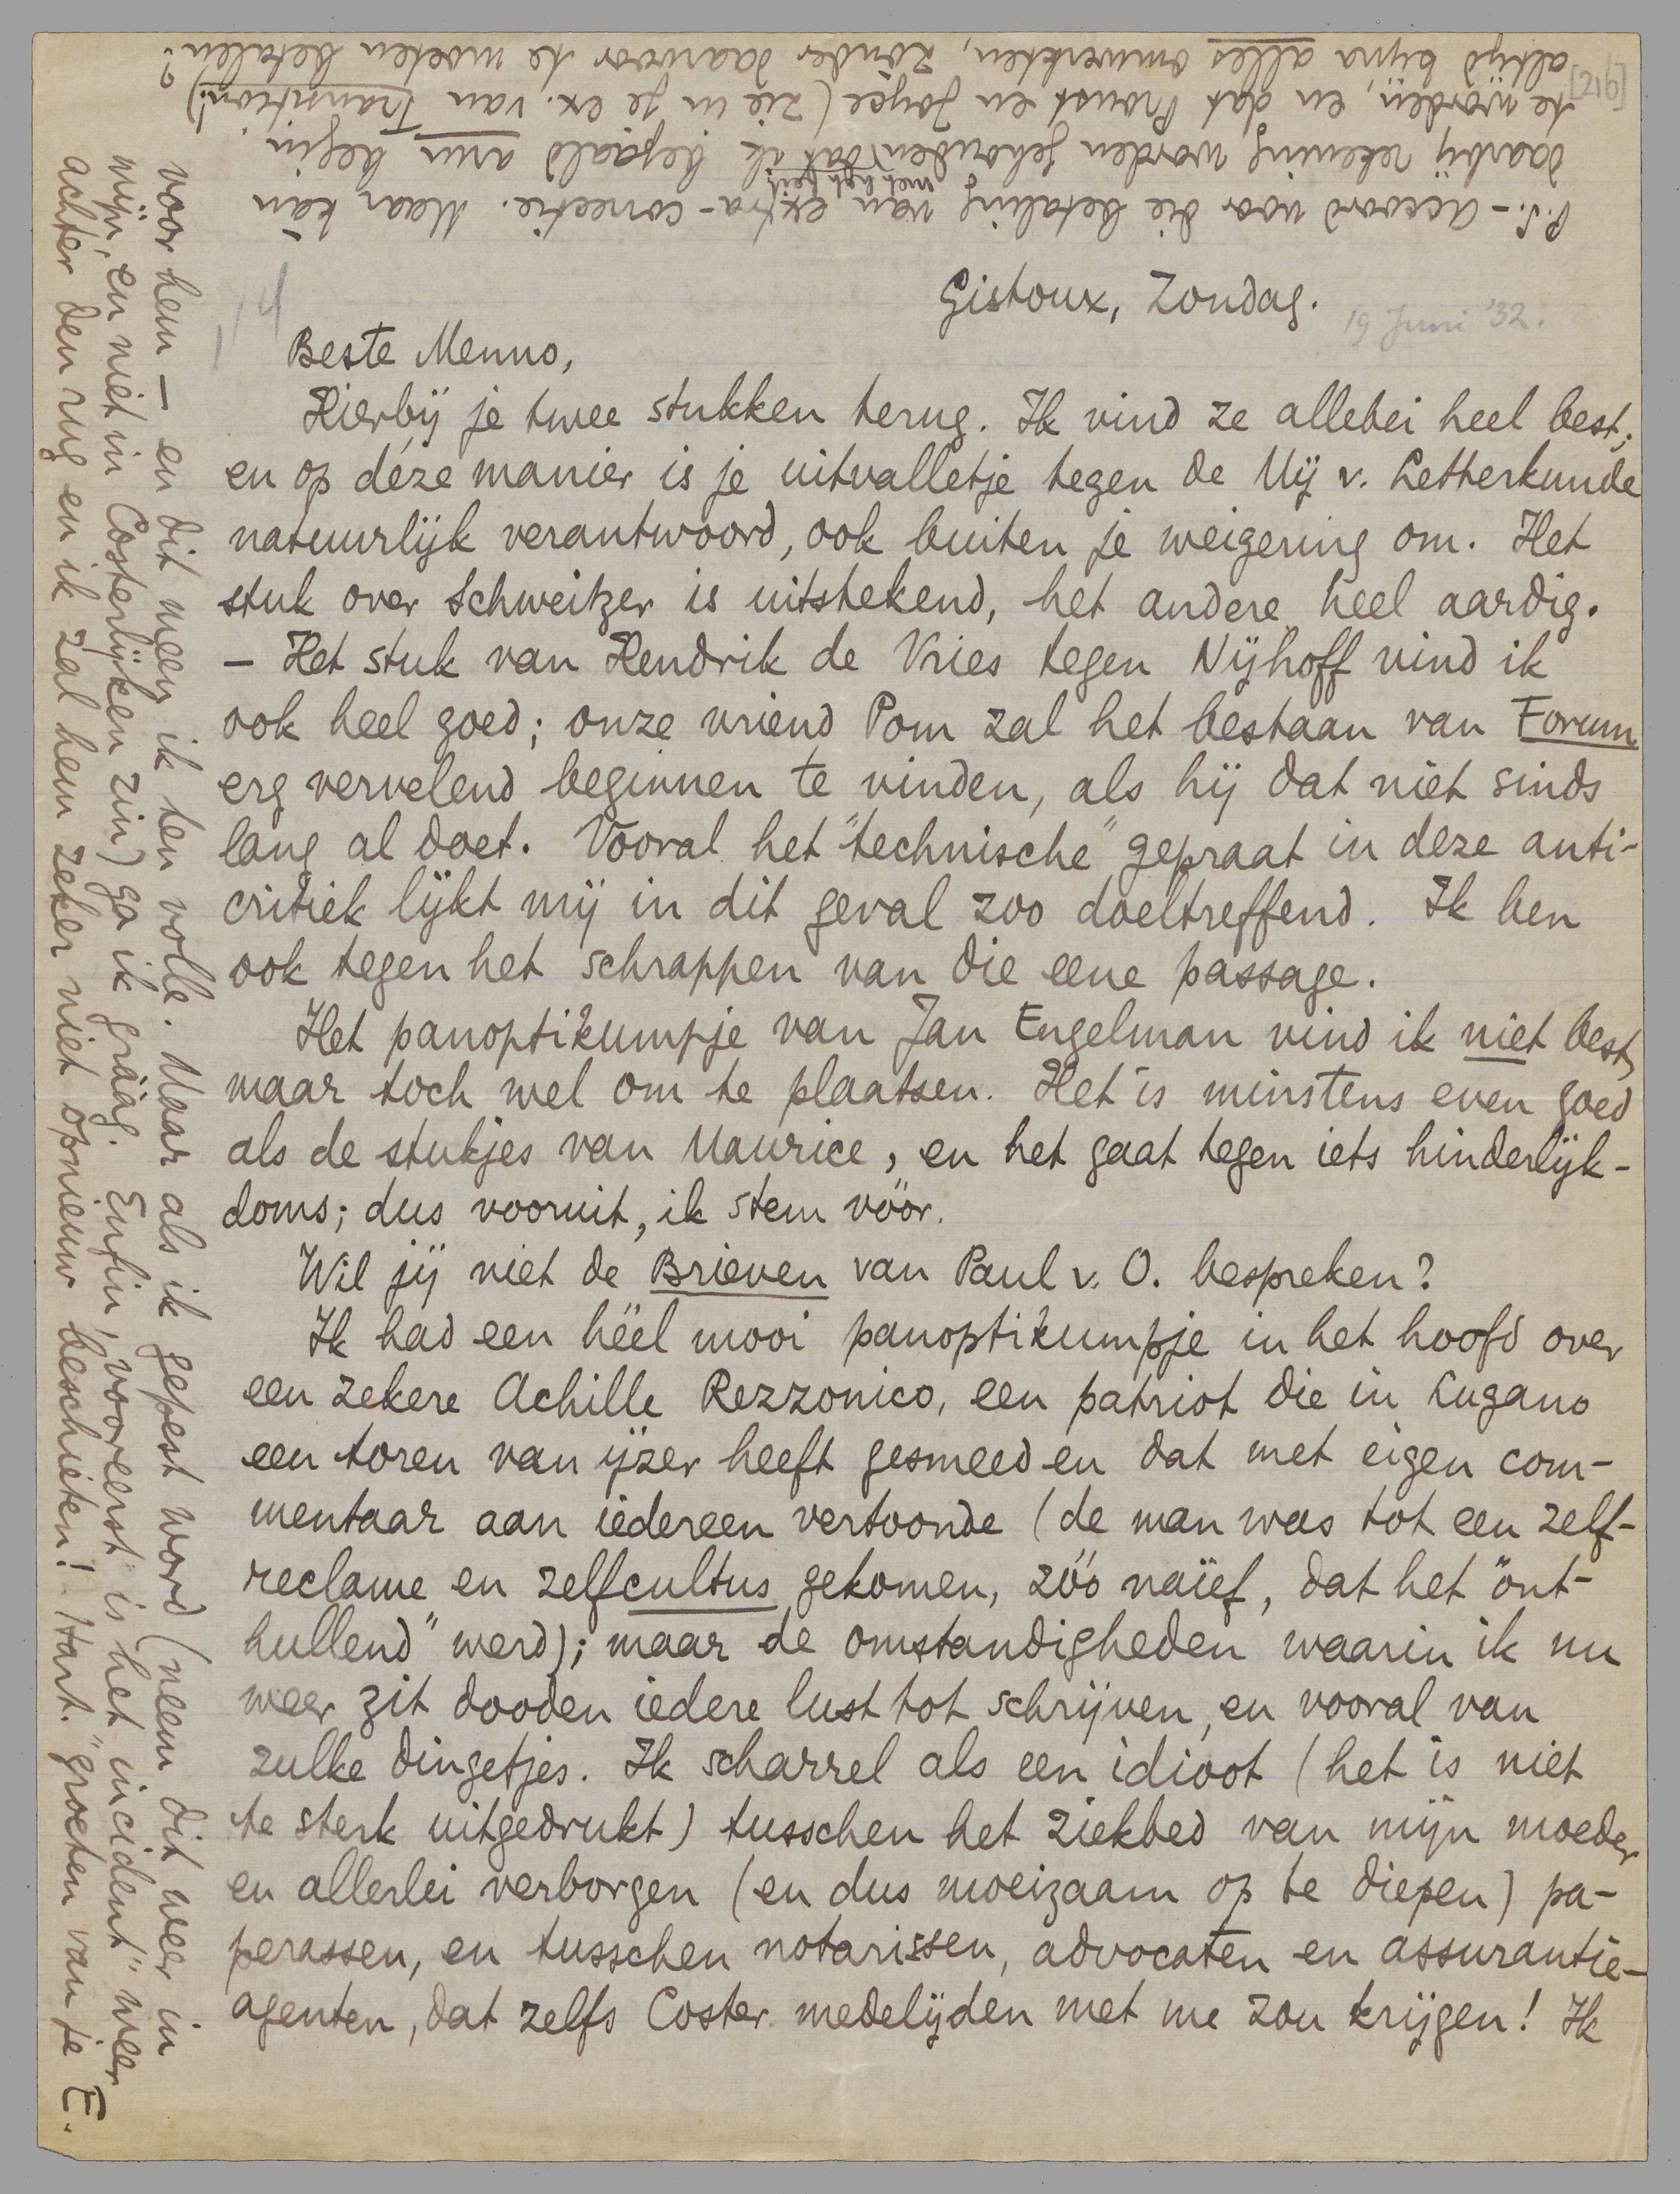 Gistoux, Zondag.
19 Juni '32.
Beste Menno,
Hierbij je twee stukken terug. Ik vind ze allebei heel best;
en op déze manier is je uitvalletje tegen de Mij v. Letterkunde
natuurlijk verantwoord, ook buiten je weigering om. Het
stuk over Schweitzer is uitstekend, het andere heel aardig.
– Het stuk van Hendrik de Vries tegen Nijhoff vind ik
ook heel goed; onze vriend Pom zal het bestaan van Forum
erg vervelend beginnen te vinden, als hij dat niet sinds
lang al doet. Vooral het "technische" gepraat in deze anti-
critiek lijkt mij in dit geval zoo doeltreffend. Ik ben
ook tegen het schrappen van die eene passage.
Het panoptikumpje van Jan Engelman vind ik niet best,
maar toch wel om te plaatsen. Het is minstens even goed
als de stukjes van Maurice, en het gaat tegen iets hinderlijk-
doms; dus vooruit, ik stem vóór.
Wil jij niet de Brieven van Paul v. O. bespreken?
Ik had een héél mooi panoptikumpje in het hoofd over
een zekere Achille Rezzonico, een patriot die in Lugano
een toren van ijzer heeft gesmeed en dat met eigen com-
mentaar aan iedereen vertoonde (de man was tot een zelf-
reclame en zelfcultus gekomen, zóó naïef, dat het "ont-
hullend" werd); maar de omstandigheden waarin ik nu
weer zit dooden iedere lust tot schrijven, en vooral van
zulke dingetjes. Ik scharrel als een idioot (het is niet
te sterk uitgedrukt) tusschen het ziekbed van mijn moeder
en allerlei verborgen (en dus moeizaam op te diepen) pa-
perassen, en tusschen notarissen, advocaten en assurantie-
agenten, dat zelfs Coster medelijden met me zou krijgen! Ik
voor hem – en dit meen ik ten volle. Maar als ik gepest word (neem dit weer in
mijn, en niet in Costerlijken zin) ga ik gráág. Enfin, vooreerst is het "incident" weer
achter den rug en ik zal hem zeker niet opnieuw beschieten! Hart. groeten van je E.
P.S. – Accoord voor die betaling van extra-correctie. Maar kàn
daarbij rekening worden gehouden met het feit dat ik bepaald arm begin
te worden, en dat Proust en Joyce (zie in je ex. van Transition!)
altijd bijna alles omwerkten, zònder daarvoor te moeten betalen?
[216]
114